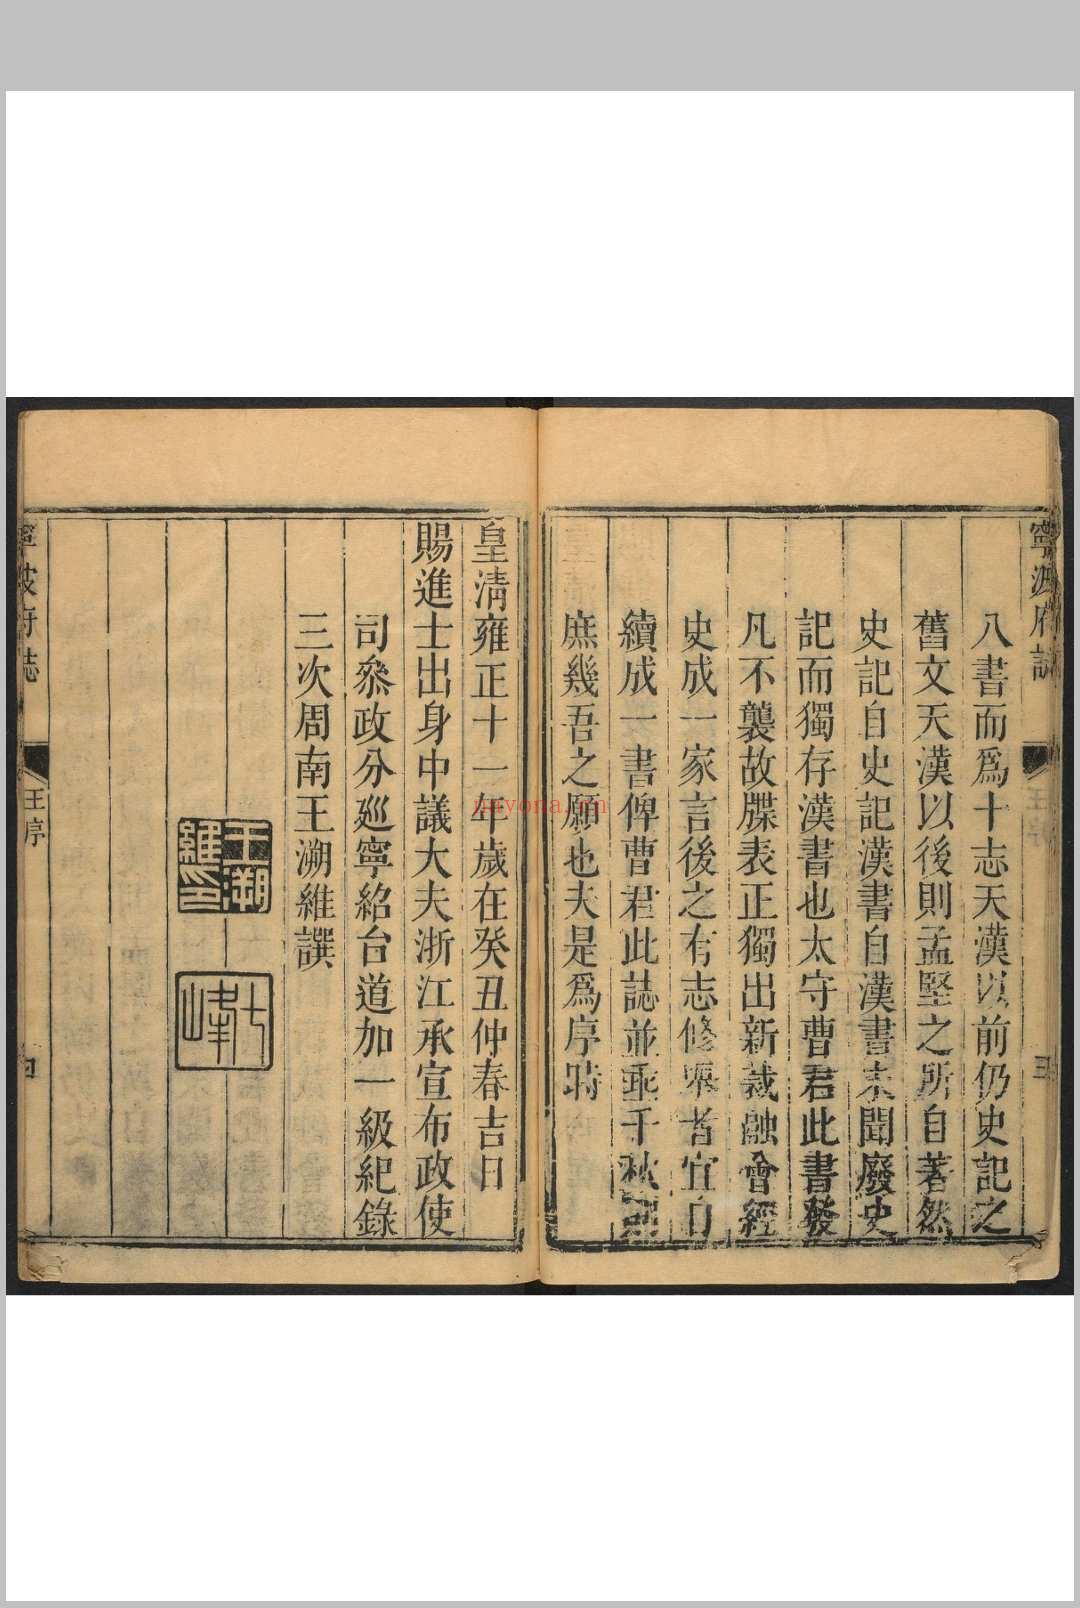 寧波府誌
三
八書而爲十志天漢以前仍史記之
舊文天漢以後則孟堅之所自著然
史記自史記漢書自漢書未聞廢史
記而獨存漢書也太守曹君此書發
凡不襲故牒表正獨出新裁融會經
史成一家言後之有志修纂者宜自
續成一書俾曹君此誌並乘千秋則
庶幾吾之願也夫是爲序時
皇清雍正十一年歲在癸丑仲春吉日
賜進士出身中議大夫浙江承宣布政使
司叅政分廵寧紹台道加一級紀錄
三次周南王溯維譔
王溯
維印
七峰
寧波府誌
王序
四
nayona.cn